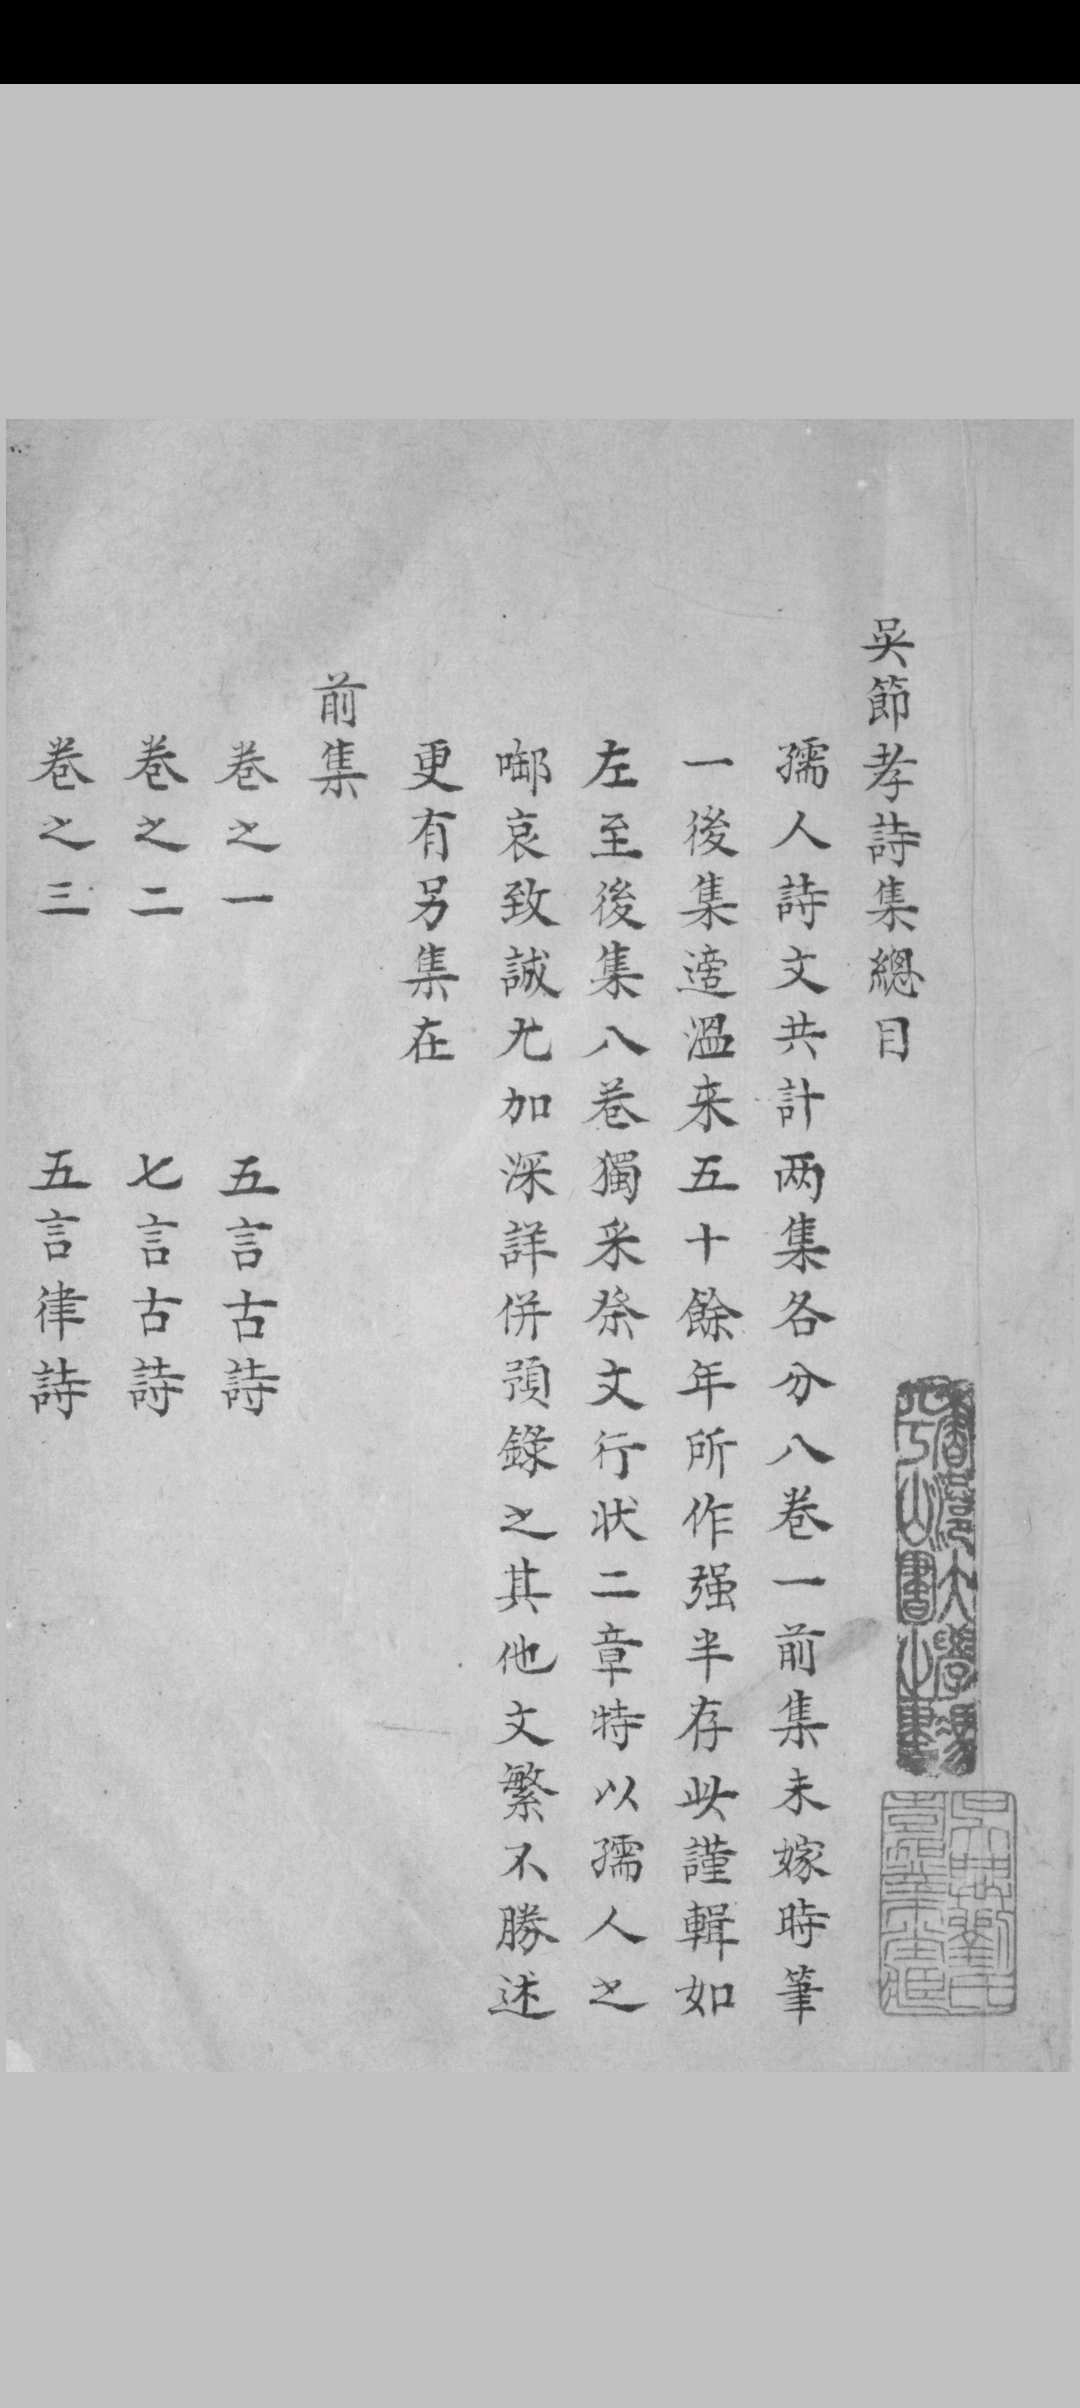 吳節孝詩集總目
孺人詩文共計两集各分八卷一前集未嫁時筆
一後集適溫来五十餘年所作强半存此謹輯如
左至後集八卷獨采祭文行状二章特以孺人之
啣哀致誠尤加深詳併預錄之其他文繁不勝述
更有另集在
前集
卷之一 五言古詩
卷之二 七言古詩
卷之三 五言律詩